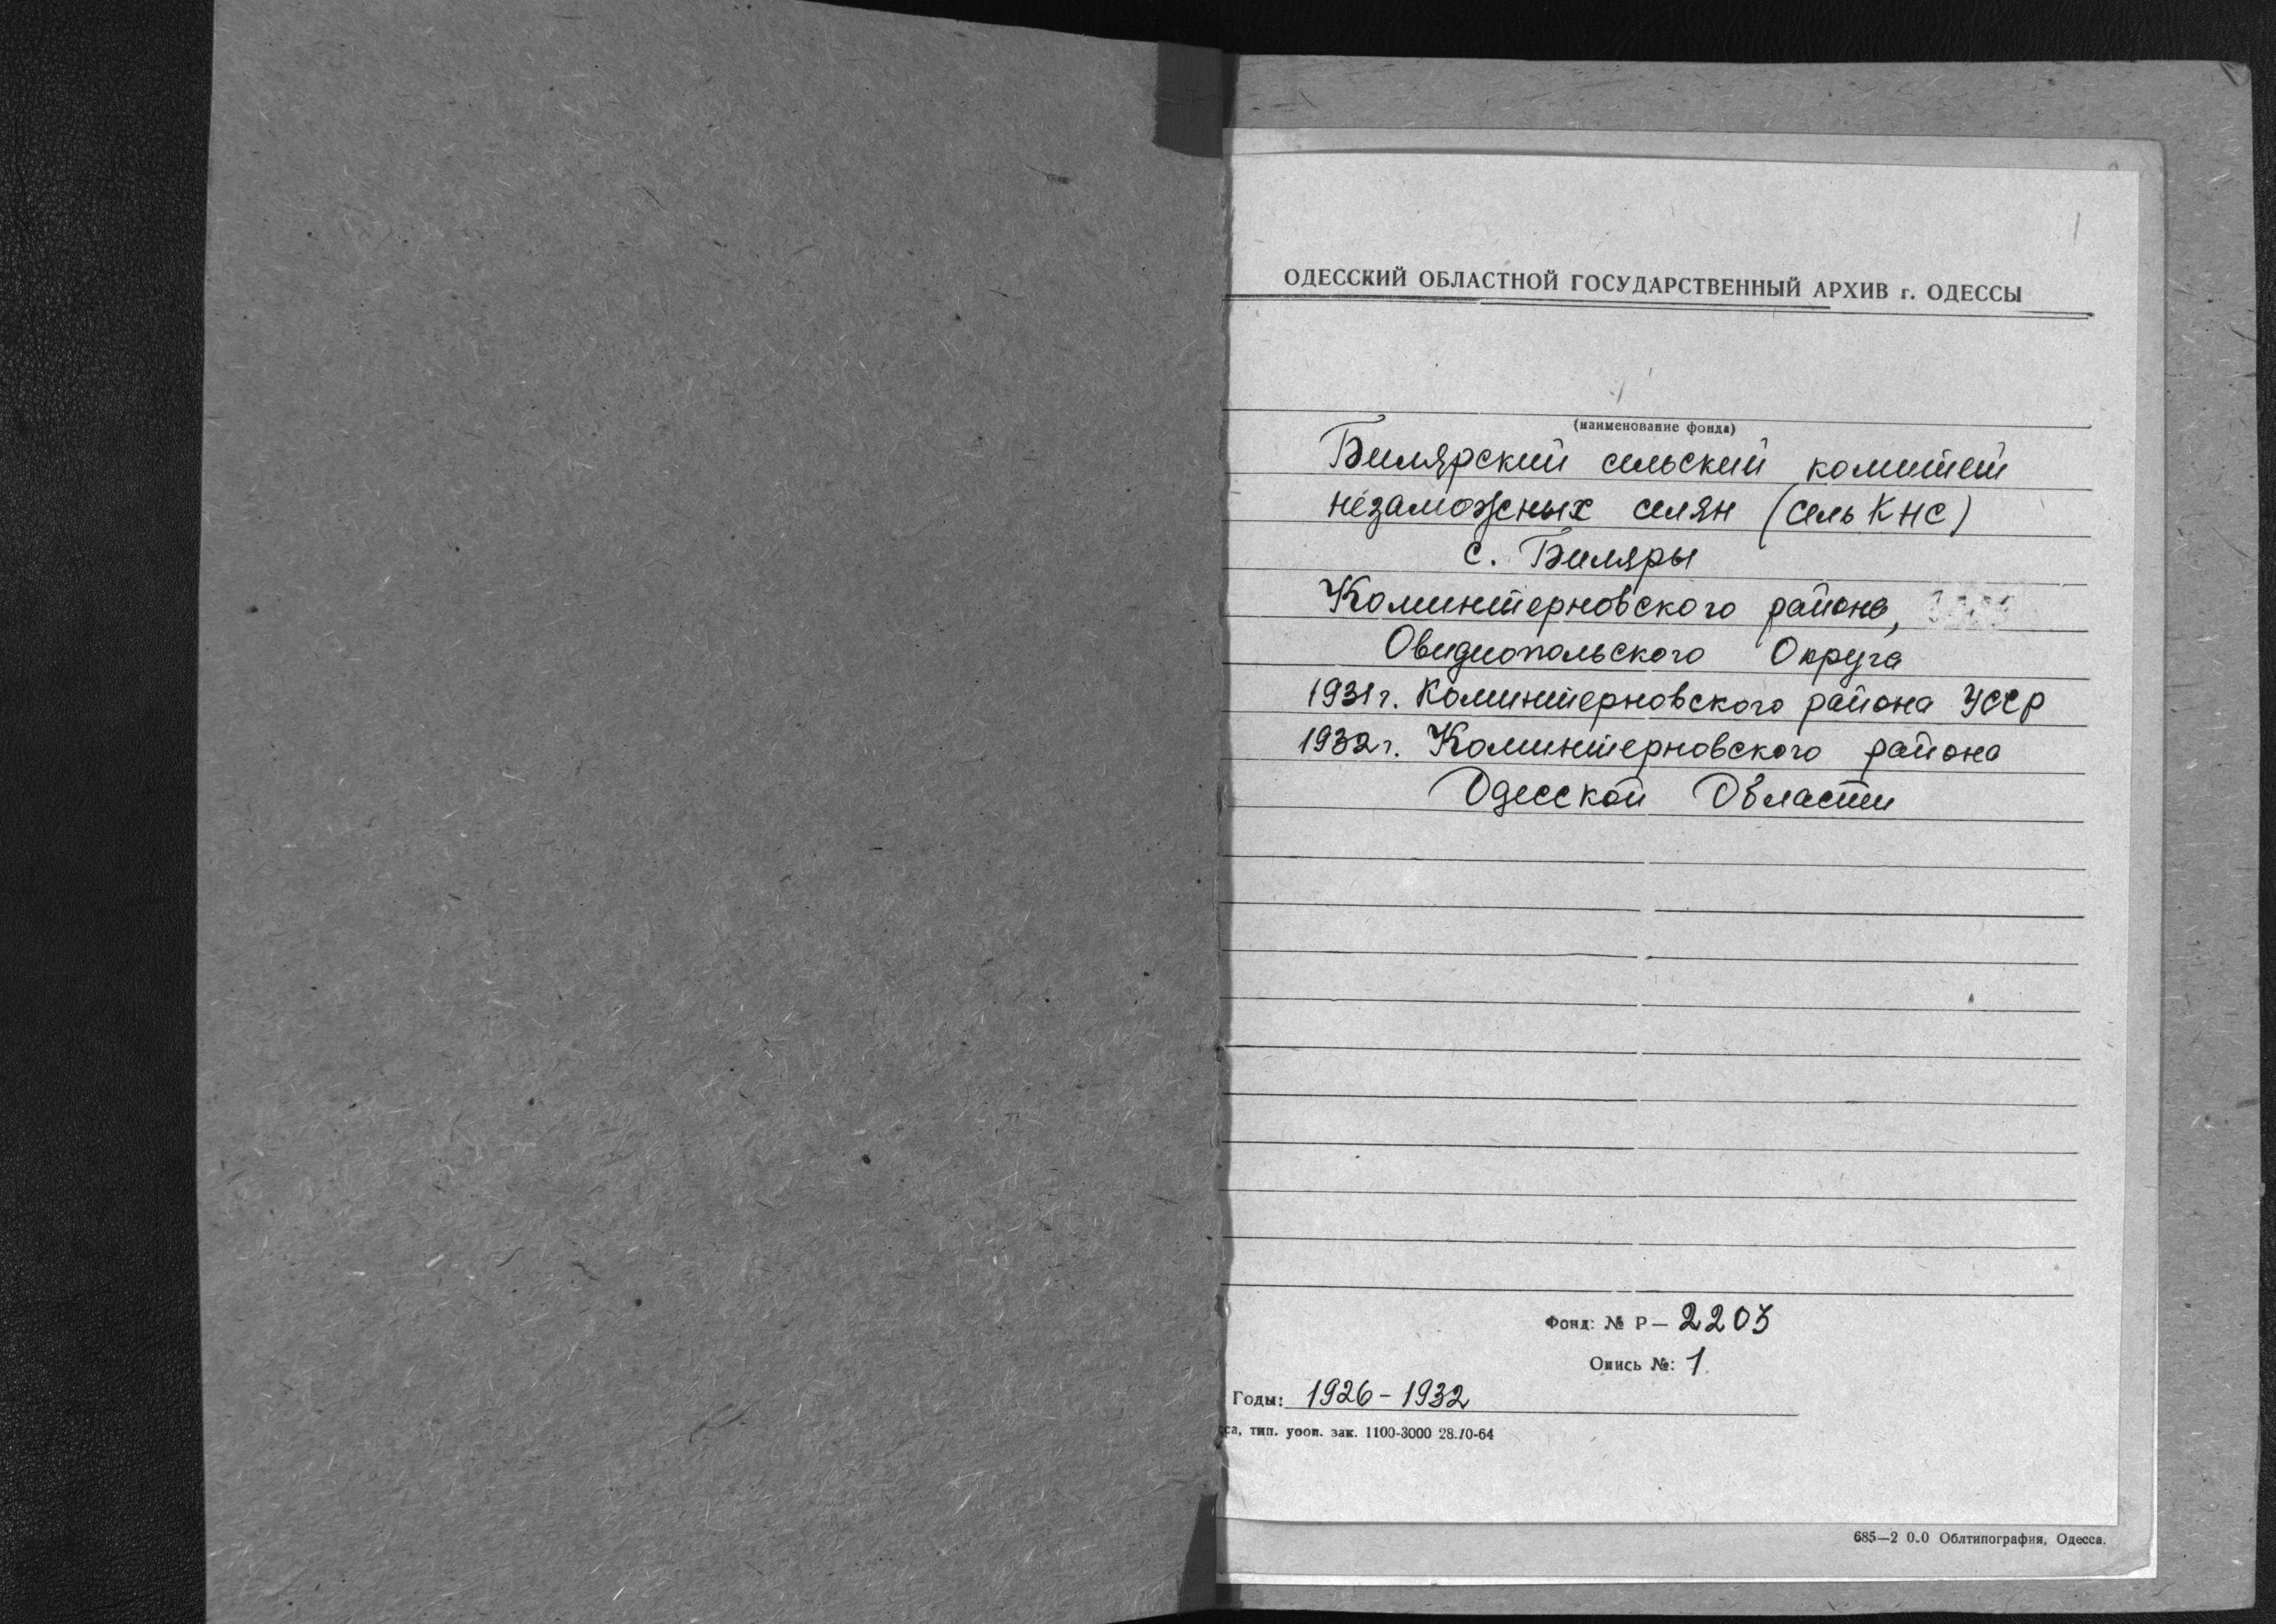 1
ОДЕССКИЙ ОБЛАСТНОЙ ГОСУДАРСТВЕННЫЙ АРХИВ г. ОДЕССЫ
(наименование фонда)
Билярский сельский комитет
незаможных селян (сель КНС)
с. Биляры
Коминтерновского района,
Овидиопольского Округа
1931 г. Коминтерновского района УССР
1932 г. Коминтерновского района
Одесской Области
Фонд: № Р— 2203
Опись №: 1
Годы: 1926-1932
тип. зак. 1100-3000 28.10-64
685—2 0.0 Облтипография, Одесса.